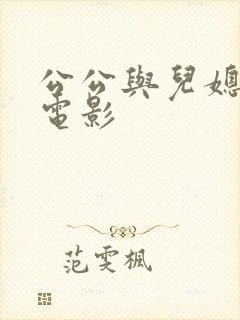 公公與兒媳
電影
范雯楓